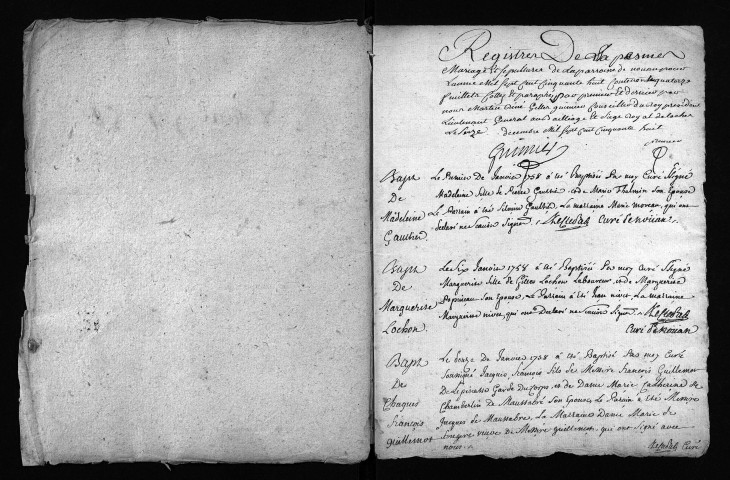 Registres De La
Mariage et sepultures de la parroisse de nouans pour
L'année Mil sept cent cinquante huit contenant quatorze
feuillets cottez et paraphés par premier et dernier par
nous Martin René Gilles guimier Conseiller du Roy president
Lieutenant General au Bailliage et siege Royal de loches
Le seize decembre Mil sept cent cinquante
guimier
Bapt Le Premier de Janvier 1758 à été Baptisée Par moy Curé
De Madeleine fille de Pierre Gaultier et de Marie son Epouse
Madeleine Le Parain à été Silvain Gaultier La marraine Marie moreau, qui ont
Gaultier Declaré ne Scavoir Signer Curé De nouans
Bapt Le Six Janvier 1758 à été Baptisée Par moy Curé
De Marguerite fille de Gilles Lochon Laboureur, et de Marguerite
Marguerite son Epouse, Le Parrain à été Jean La marraine
Lochon Marguerite qui ont Declaré ne Scavoir Signer
Curé De nouans
Bapt Le de Janvier 1758 à été Baptisé Par moy Curé
De Soussigné Jacques françois fils de Messire françois Guillemot
Chaques De Garde du Corps, et de Dame Marie Catherine de
françois Chamberlin de Maussabré Son Epouse, Le Parain à été Messire
guillemot Jacques de Maussabre, La Marraine Dame Marie de
veuve de Messire guillemot, qui ont Signé avec
nous Curé